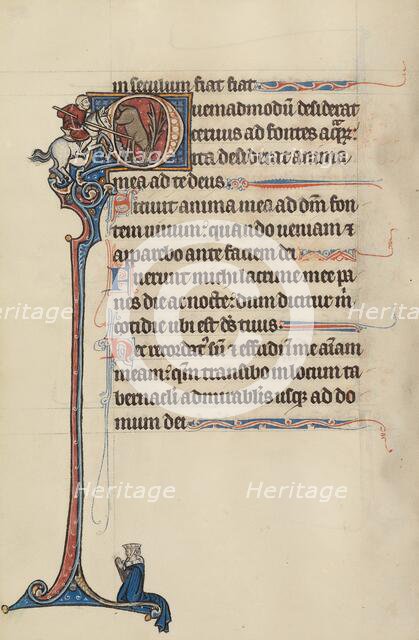 in seculum fiat fiat.
Quemadmodū desiderat
ceruus ad fontes aqȝ:
ita desiderat anima
mea ad te deus.
Sitiuit anima mea ad dm̄ fon
tem uiuum: quando ueniam &
apparebo ante faciem dei.
Fuerunt michi lacrime mee pa
nes die ac nocte: dum dicitur m̄
cotidie ubi est ds̄ tuus.
Hec recordatꝰ sū & effudi ī me aīam
meam: qm̄ transibo in locum ta
bernacli admirabilis usqȝ ad do
mum dei.
Heritage
Heritage
Heritage
Heritage
Heritage
Heritage